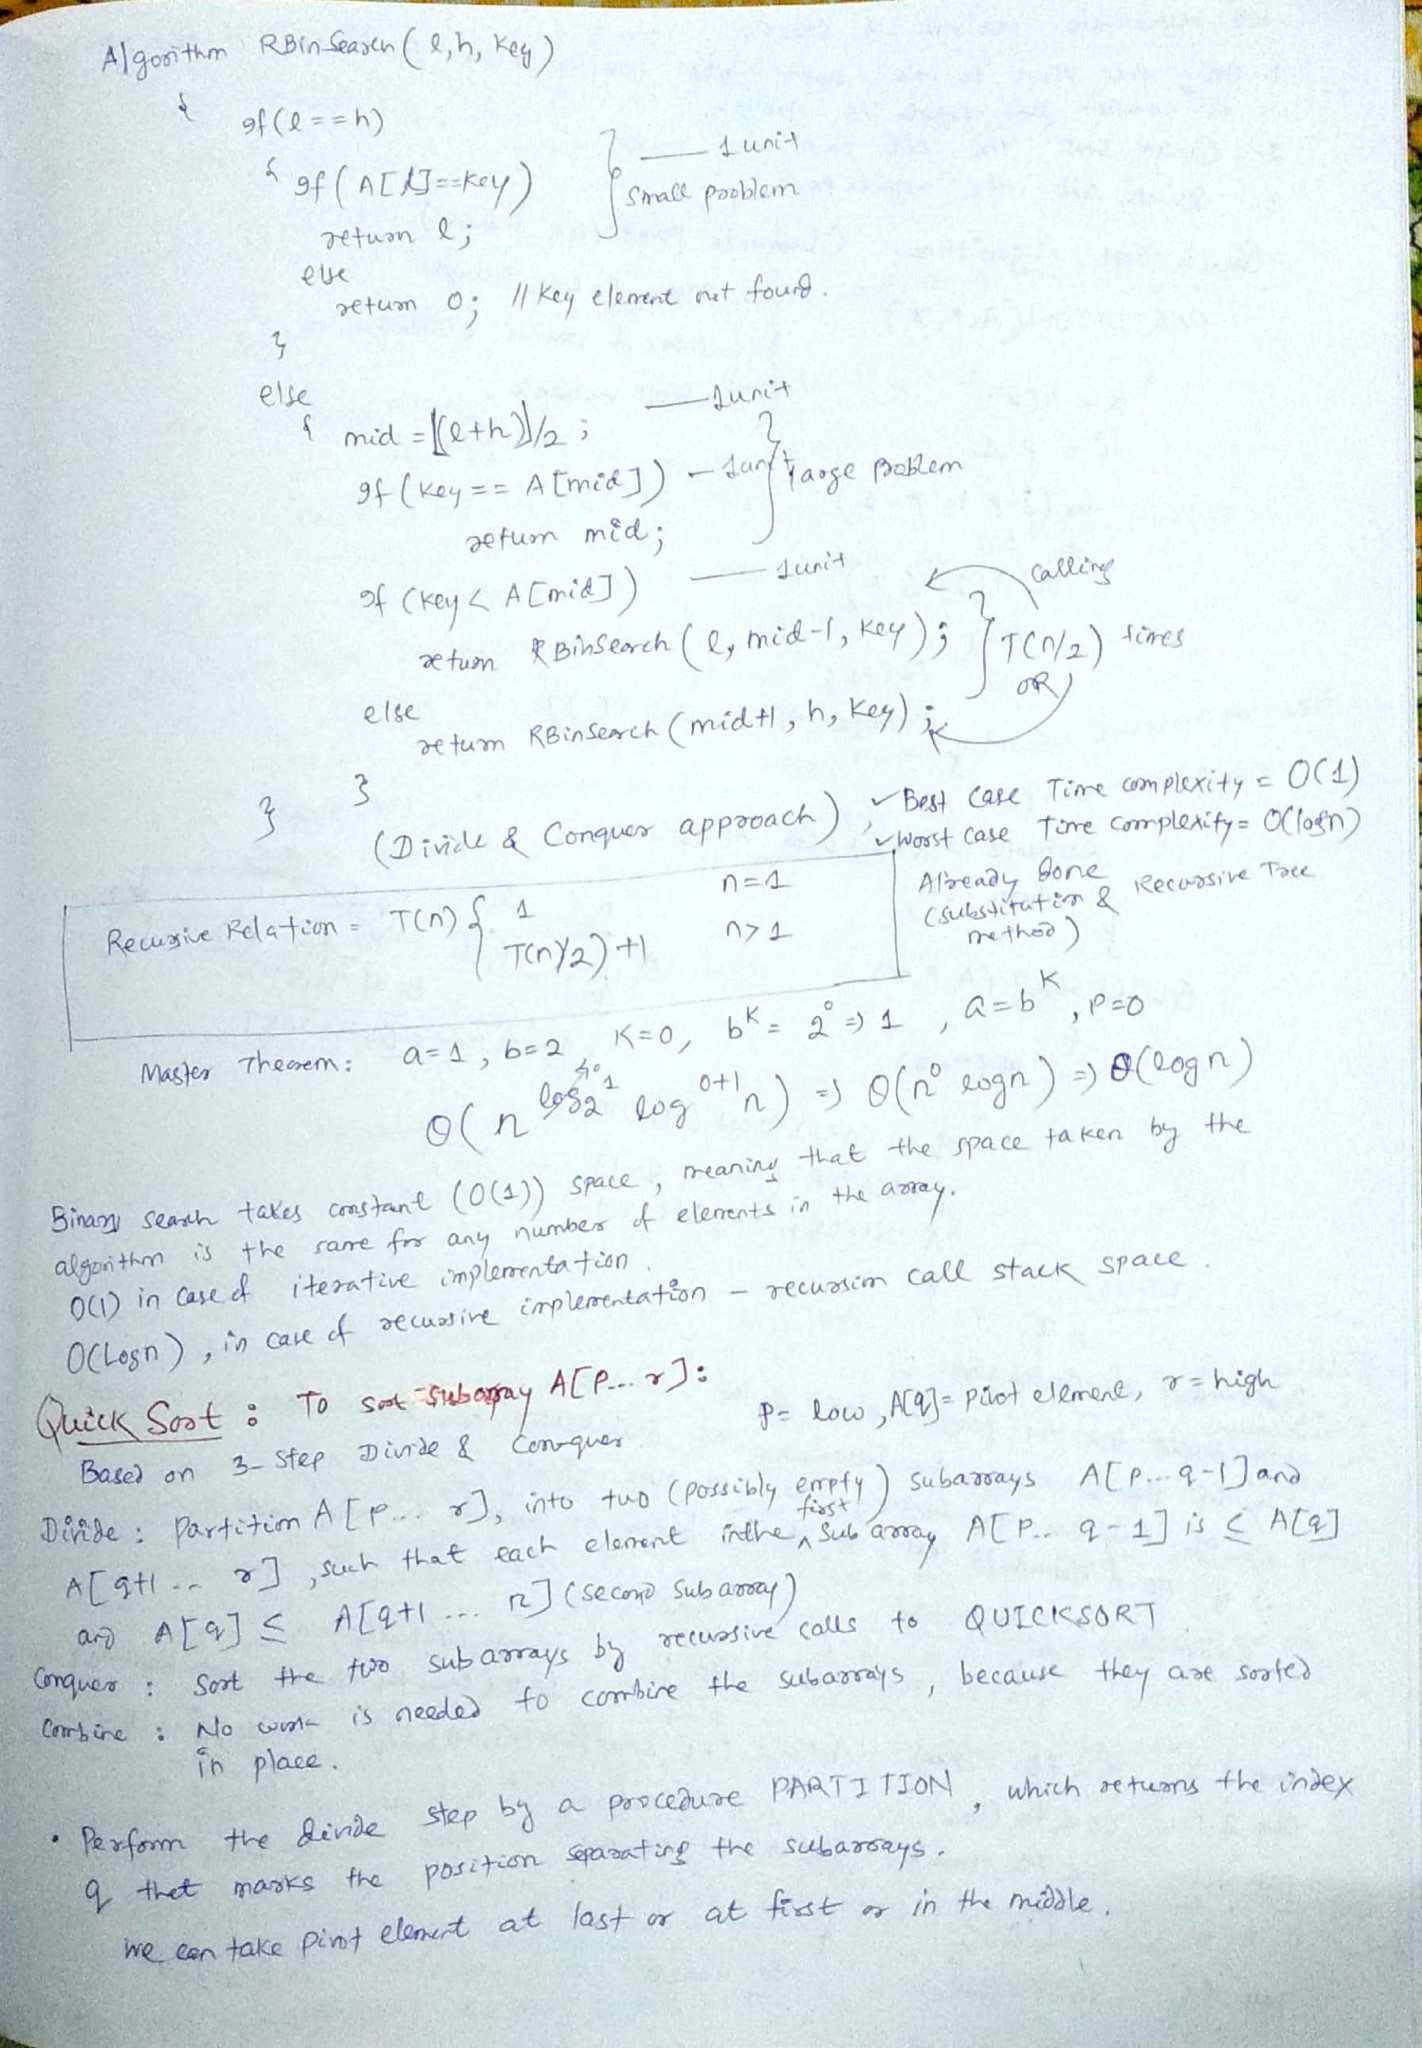 Algorithm RBinSearch (l, h, key)
{
if (l == h)
{ if (A[l]==key) } — 1 unit
small problem
return l;
else
return 0; // Key element not found.
}
else — 1 unit
{ mid = [(l+h)]/2 ;
if (key == A[mid]) — 1 unit } large problem
return mid;
if (key < A[mid]) — 1 unit
calling
return RBinSearch (l, mid-1, key); } T(n/2) times
OR
else
return RBinSearch (mid+1, h, key);
}
}
(Divide & Conquer approach), ✓ Best Case Time complexity = O(1)
✓ Worst Case Time complexity = O(logn)
Already done
(substitution & Recursive Tree
method)
Recursive Relation = T(n) { 1 n=1
T(n/2) +1 n>1
Master Theorem: a=1, b=2, K=0, b^K = 2^0 => 1, a=b^K, p=0
Θ(n^log2 1 log^0+1 n) => Θ(n^0 logn) => Θ(logn)
Binary search takes constant (O(1)) space, meaning that the space taken by the
algorithm is the same for any number of elements in the array.
O(1) in case of iterative implementation.
O(Logn), in case of recursive implementation - recursion call stack space.
Quick Sort : To sort subarray A[P...r]:
p = low, A[q] = pivot element, r = high
Based on 3-step Divide & Conquer
Divide : Partition A[p... r], into two (possibly empty) subarrays A[p...q-1] and
A[q+1... r], such that each element in the first sub array A[P.. q-1] is ≤ A[q]
and A[q] ≤ A[q+1 ... r] (second subarray)
Conquer : Sort the two subarrays by recursive calls to QUICKSORT
Combine : No work is needed to combine the subarrays, because they are sorted
in place.
• Perform the divide step by a procedure PARTITION, which returns the index
q that marks the position separating the subarrays.
we can take pivot element at last or at first or in the middle.